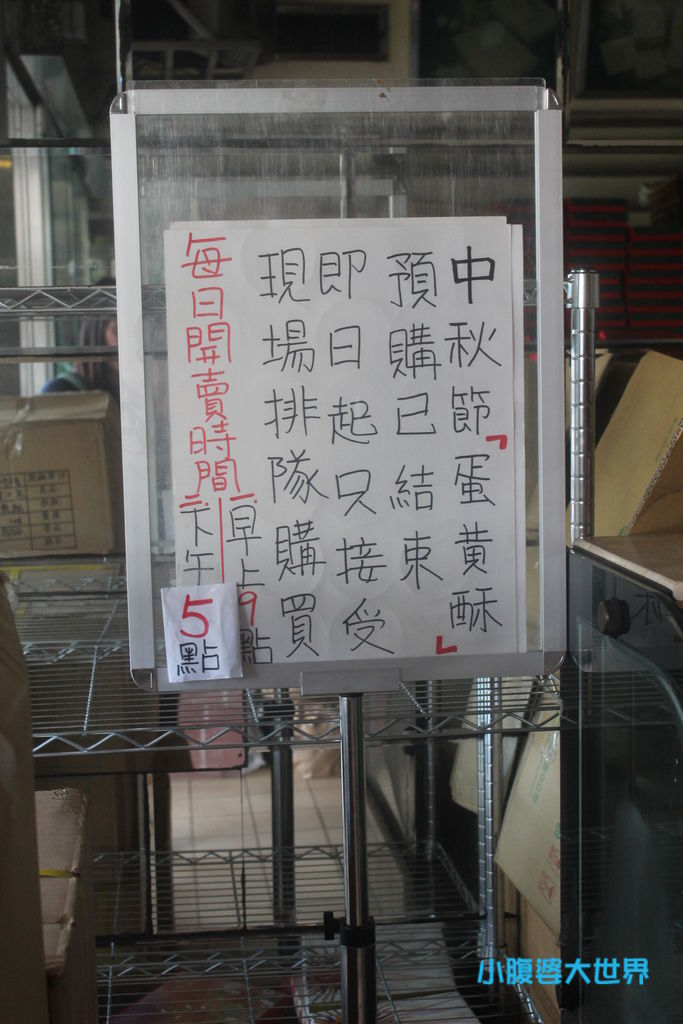 中秋節「蛋黃酥」
預購已結束
即日起只接受
現場排隊購買
每日開賣時間
一.早上9點
二.下午5點
小腹婆大世界